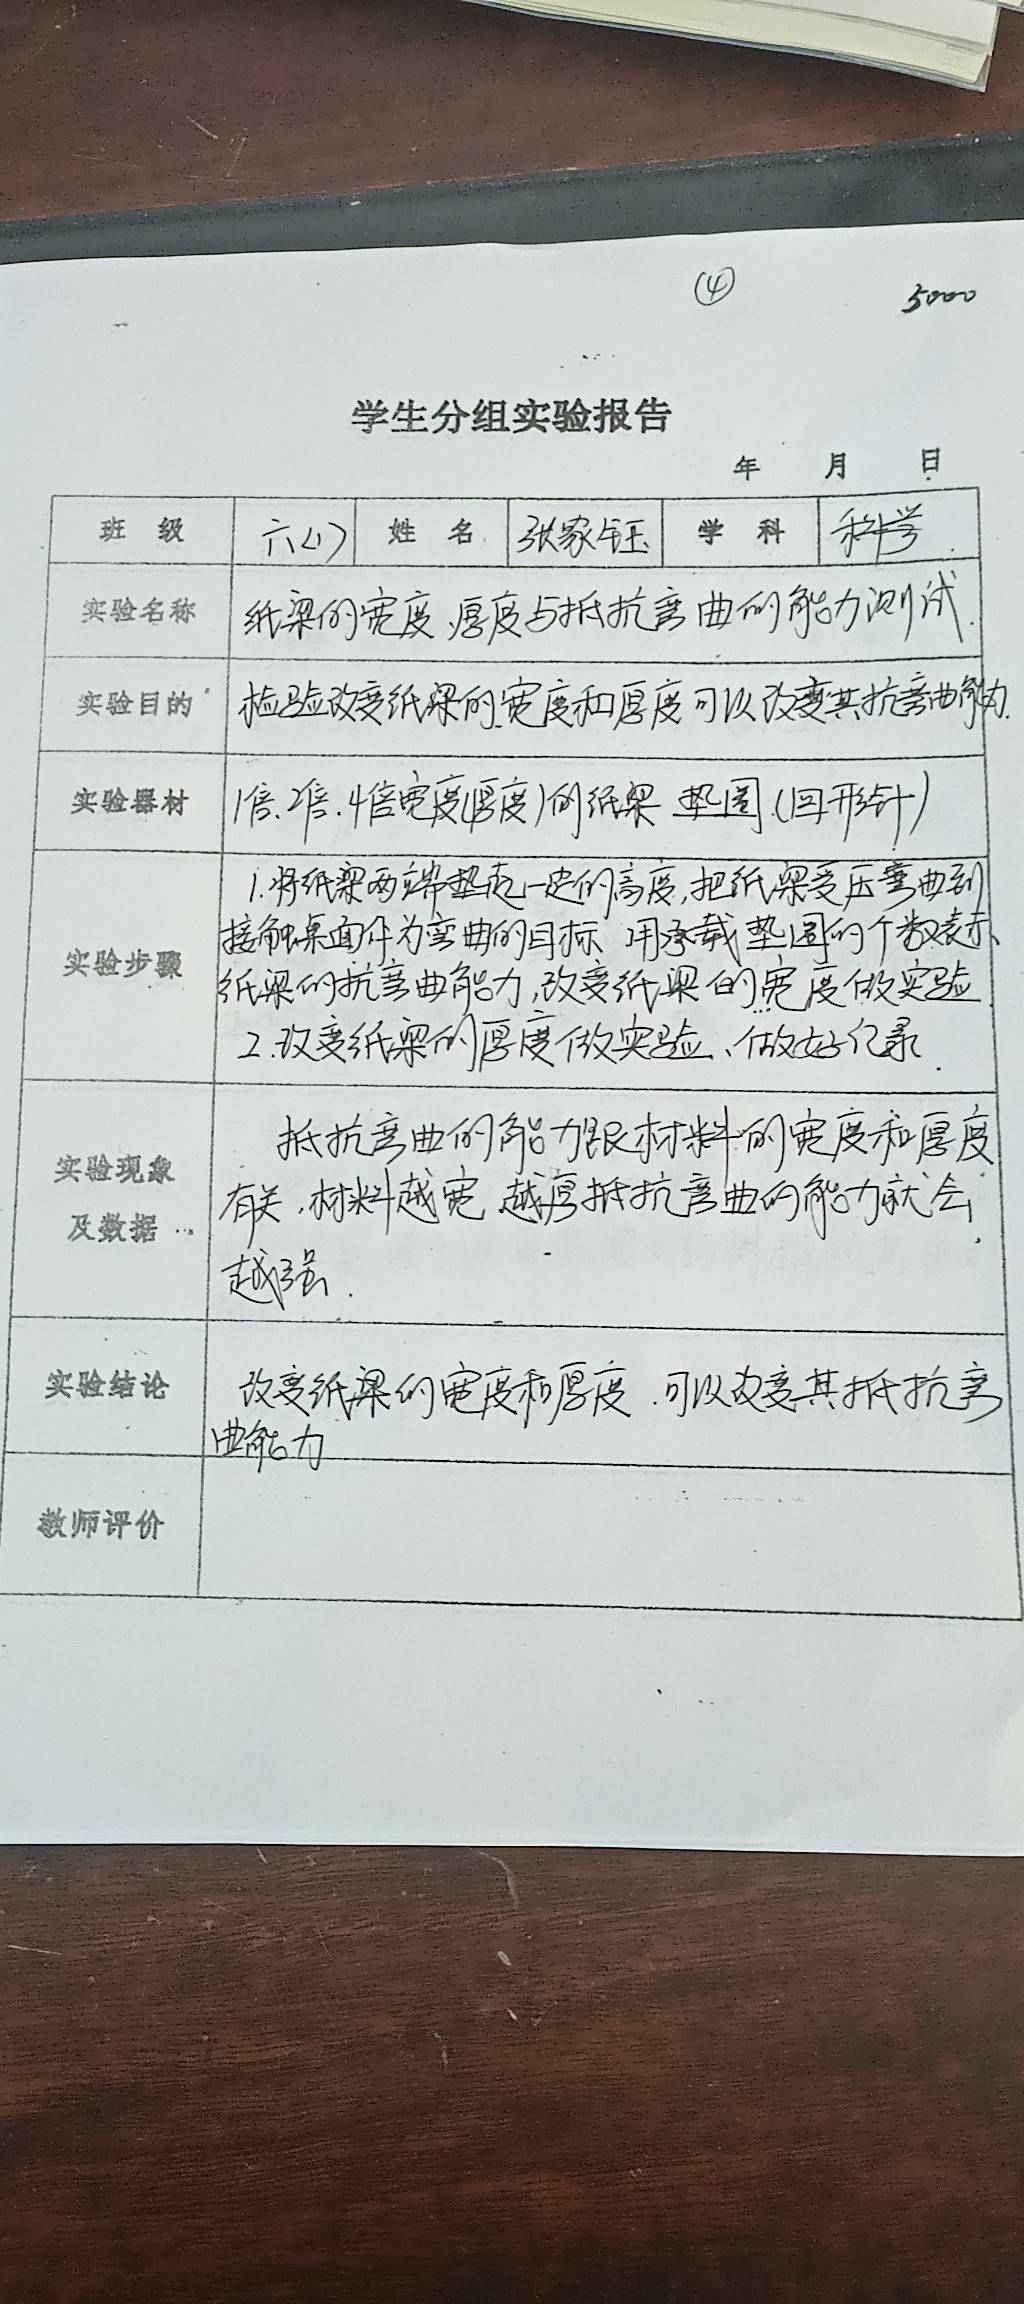 ④ 5000
学生分组实验报告
年 月 日
班 级 六(1) 姓 名 张家钰 学 科 科学
实验名称 纸梁的宽度、厚度与抵抗弯曲的能力测试.
实验目的 检验改变纸梁的宽度和厚度可以改变其抗弯曲能力.
实验器材 1倍.2倍.4倍宽度(厚度)的纸梁 垫圈.(回形针)
实验步骤
1.将纸梁两端垫起一定的高度,把纸梁受压弯曲到
接触桌面作为弯曲的目标 用承载垫圈的个数表示
纸梁的抗弯曲能力,改变纸梁的宽度做实验
2.改变纸梁的厚度做实验、做好记录.
实验现象
及数据
抵抗弯曲的能力跟材料的宽度和厚度
有关,材料越宽 越厚抵抗弯曲的能力就会
越强.
实验结论
改变纸梁的宽度和厚度.可以改变其抵抗弯
曲能力
教师评价